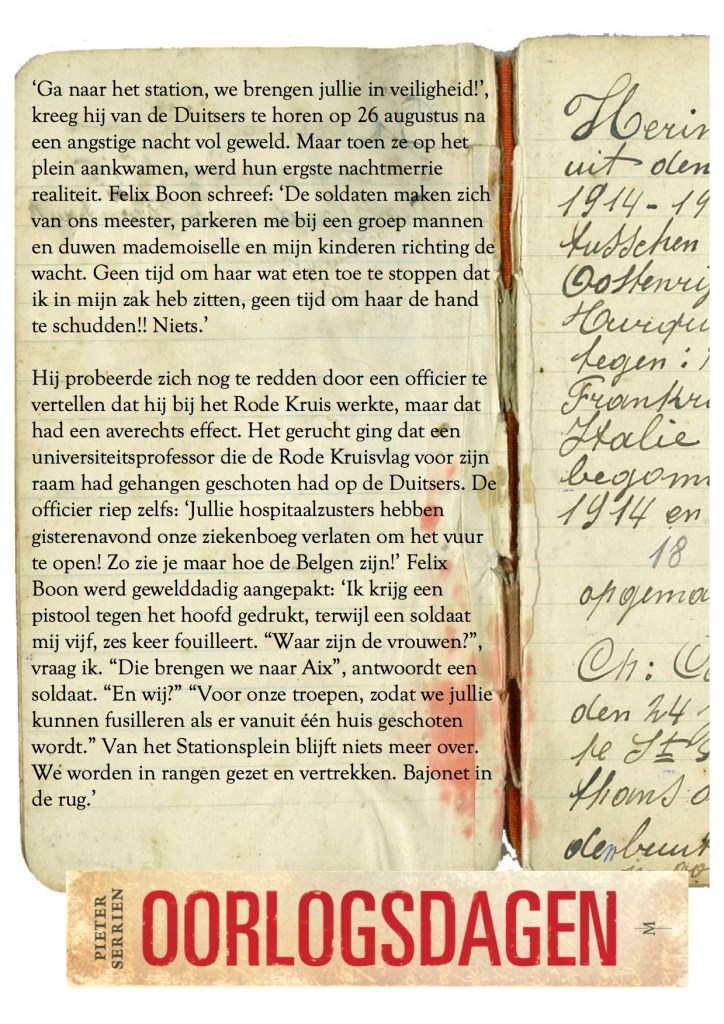 ‘Ga naar het station, we brengen jullie in veiligheid!’,
kreeg hij van de Duitsers te horen op 26 augustus na
een angstige nacht vol geweld. Maar toen ze op het
plein aankwamen, werd hun ergste nachtmerrie
realiteit. Felix Boon schreef: ‘De soldaten maken zich
van ons meester, parkeren me bij een groep mannen
en duwen mademoiselle en mijn kinderen richting de
wacht. Geen tijd om haar wat eten toe te stoppen dat
ik in mijn zak heb zitten, geen tijd om haar de hand
te schudden!! Niets.’
Hij probeerde zich nog te redden door een officier te
vertellen dat hij bij het Rode Kruis werkte, maar dat
had een averechts effect. Het gerucht ging dat een
universiteitsprofessor die de Rode Kruisvlag voor zijn
raam had gehangen geschoten had op de Duitsers. De
officier riep zelfs: ‘Jullie hospitaalzusters hebben
gisterenavond onze ziekenboeg verlaten om het vuur
te open! Zo zie je maar hoe de Belgen zijn!’ Felix
Boon werd gewelddadig aangepakt: ‘Ik krijg een
pistool tegen het hoofd gedrukt, terwijl een soldaat
mij vijf, zes keer fouilleert. “Waar zijn de vrouwen?”,
vraag ik. “Die brengen we naar Aix”, antwoordt een
soldaat. “En wij?” “Voor onze troepen, zodat we jullie
kunnen fusilleren als er vanuit één huis geschoten
wordt.” Van het Stationsplein blijft niets meer over.
We worden in rangen gezet en vertrekken. Bajonet in
de rug.’
Herin
uit den
1914-19
tusschen
Oostenrij
tegen:
Frankr
Italie
begon
1914 en
18
opgema
Ch:
den 24
te St
thans
PIETER
SERRIEN
OORLOGSDAGEN
M